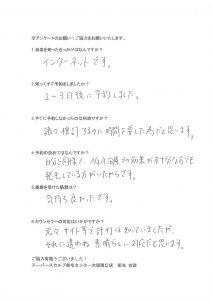 ※アンケートのお願い!ご協力をお願いいたします。
1.当店を知ったきっかけはなんですか?
インターネットです。
2.知ってすぐ予約をしましたか?
2〜3日後に予約しました。
3.すぐに予約しなかったのは何故ですか?
諸々検討するのに時間を要した為だと思います。
4.予約の決めてはなんですか?
的を同様で、AGA治療で効果が十分なくても
発毛している方がいたからです。
5.施術を受けた感想は?
気持ち良かったです。
6.カウンセラーの対応はいかがですか?
元々サイト等で評判は知っていましたが、
それに違わぬ素晴らしい対応だと思います。
ご協力有難うございました!
スーパースカルプ発毛センター大塚南口店